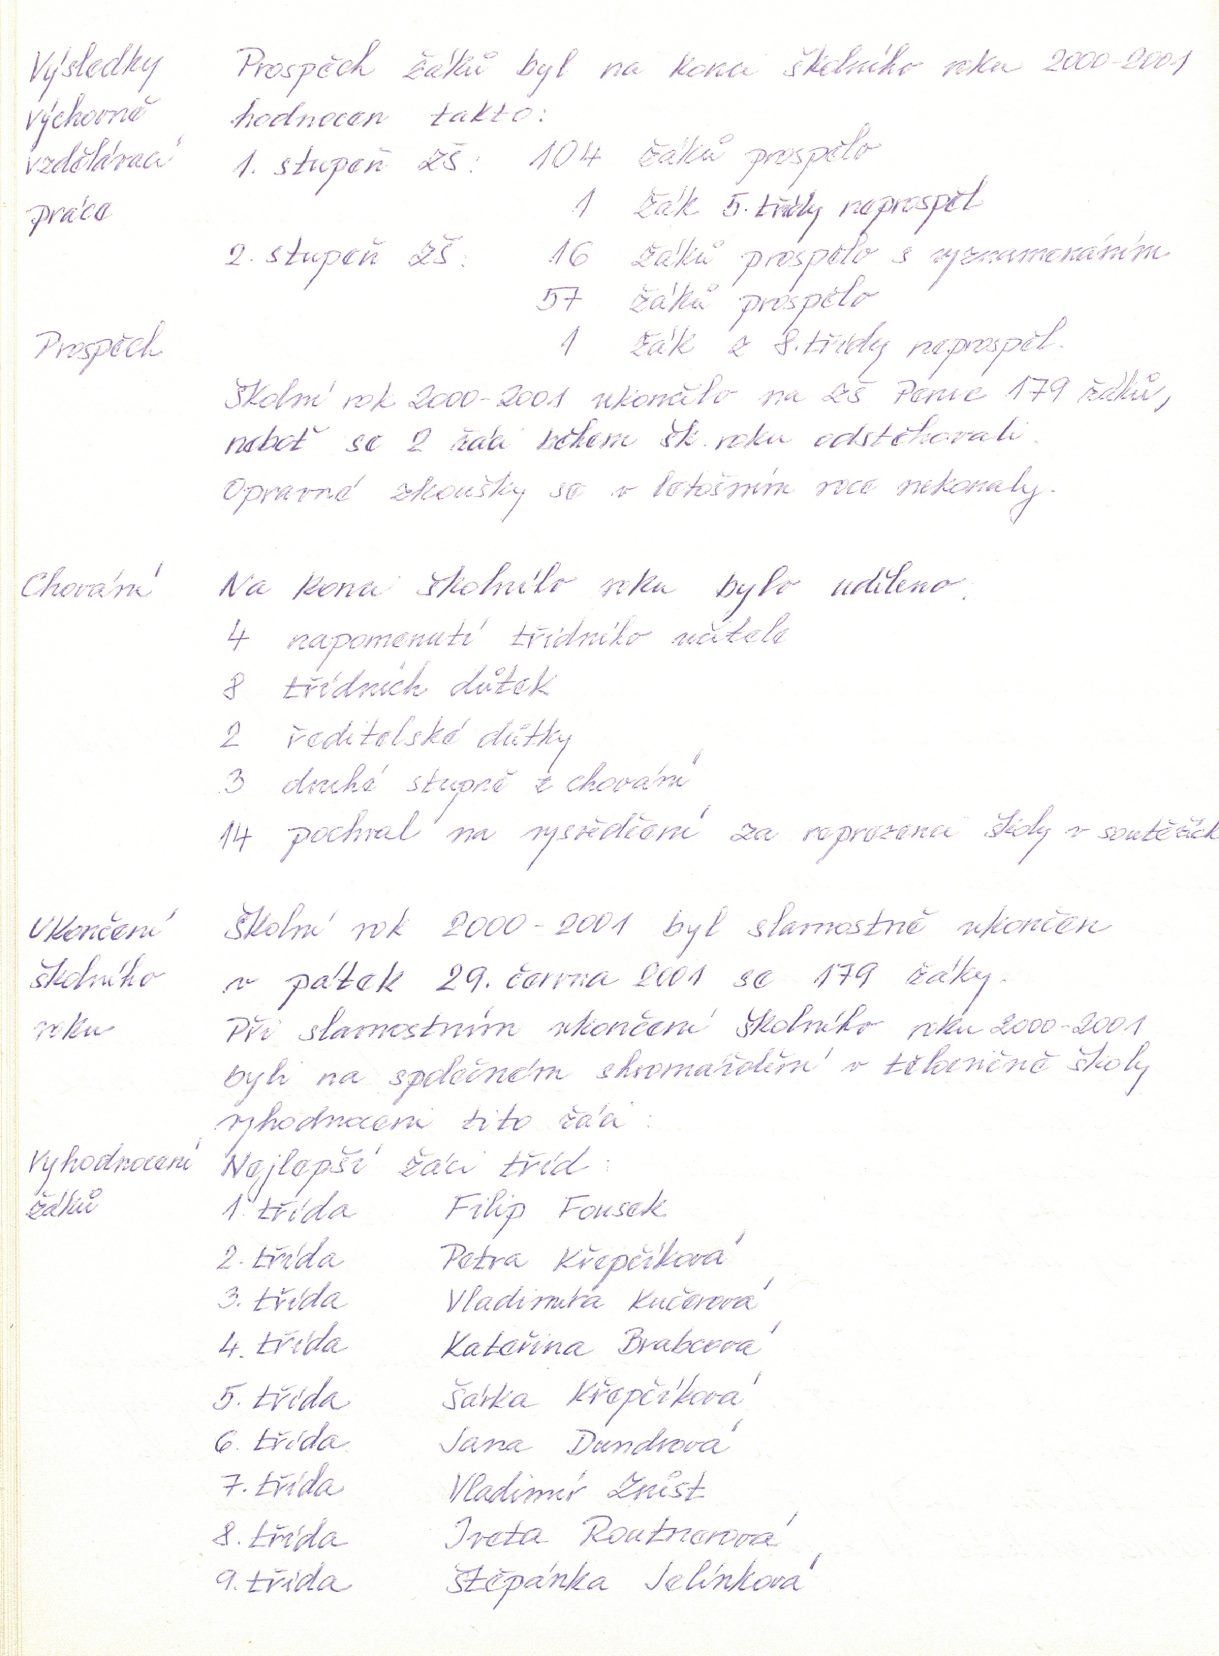 Výsledky Prospěch žáků byl na konci školního roku 2000-2001
výchovně hodnocen takto:
vzdělávací 1. stupeň ZŠ: 104 žáků prospělo
práce 1 žák 5. třídy neprospěl
2. stupeň ZŠ: 16 žáků prospělo s vyznamenáním
57 žáků prospělo
Prospěch 1 žák z 8. třídy neprospěl.
Školní rok 2000-2001 ukončilo na ZŠ Peruc 179 žáků,
neboť se 2 žáci během šk. roku odstěhovali.
Opravné zkoušky se v letošním roce nekonaly.
Chování Na konci školního roku bylo uděleno:
4 napomenutí třídního učitele
8 třídních důtek
2 ředitelské důtky
3 druhé stupně z chování
14 pochval na vysvědčení za reprezenci školy v soutěžích
Ukončení Školní rok 2000-2001 byl slavnostně ukončen
školního v pátek 29. června 2001 se 179 žáky.
roku Při slavnostním ukončení školního roku 2000-2001
byli na společném shromáždění v tělocvičně školy
vyhodnoceni tito žáci:
Vyhodnocení Nejlepší žáci tříd:
žáků 1. třída Filip Fousek
2. třída Petra Křepčíková
3. třída Vladimíra Kučerová
4. třída Kateřina Brabcová
5. třída Šárka Křepčíková
6. třída Jana Dundrová
7. třída Vladimír
8. třída Iveta Routnerová
9. třída Štěpánka Jelínková